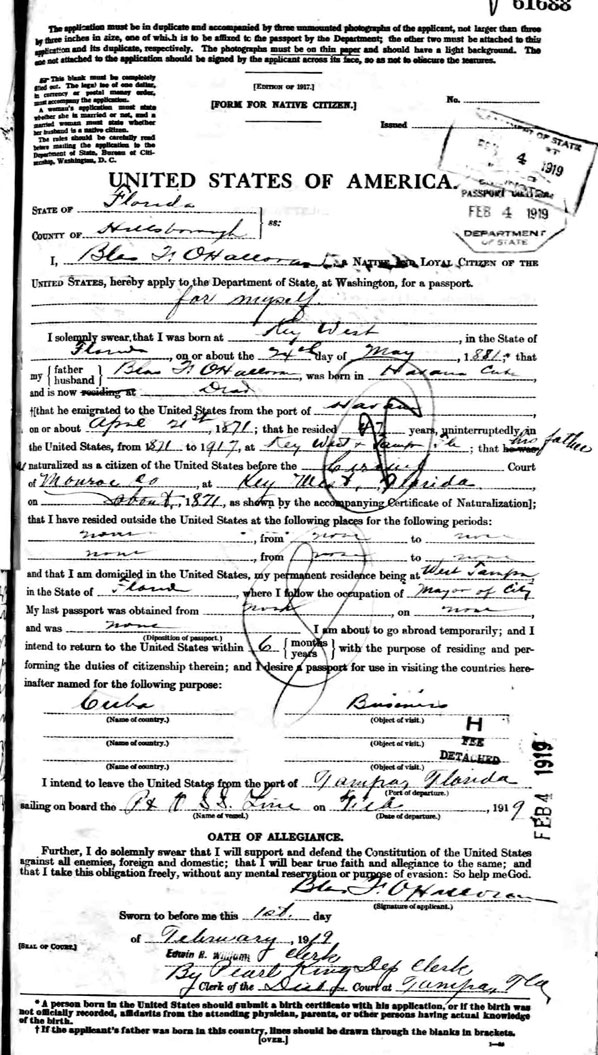 61688
The application must be in duplicate and accompanied by three unmounted photographs of the applicant, not larger than three
by three inches in size, one of which is to be affixed to the passport by the Department; the other two must be attached to this
application and its duplicate, respectively. The photographs must be on thin paper and should have a light background. The
one not attached to the application should be signed by the applicant across its face, so as not to obscure the features.
This blank must be completely
filled out. The legal fee of one dollar,
in currency or postal money order,
must accompany the application.
A woman's application must state
whether she is married or not, and a
married woman must state whether
her husband is a native citizen.
The rules should be carefully read
before mailing the application to the
Department of State, Bureau of Citi-
zenship, Washington, D. C.
[EDITION OF 1917.]
[FORM FOR NATIVE CITIZEN.]
No.
Issued
DEPARTMENT OF STATE
FEB 4 1919
PASSPORT
FEB 4 1919
DEPARTMENT
OF STATE
UNITED STATES OF AMERICA.
STATE OF Florida
COUNTY OF Hillsborough ss:
I, Blas F. O'Halloran, a NATIVE AND LOYAL CITIZEN OF THE
UNITED STATES, hereby apply to the Department of State, at Washington, for a passport.
for myself
I solemnly swear, that I was born at Key West, in the State of
Florida, on or about the 24th day of May, 1881; that
my {father husband} Blas F. O'Halloran, was born in Havana Cuba,
and is now residing at Dead
†[that he emigrated to the United States from the port of Havana
on or about April 21st, 1871; that he resided 47 years, uninterruptedly, in
the United States, from 1871 to 1917, at Key West & Tampa Fla; that he was his father
naturalized as a citizen of the United States before the Circuit Court
of Monroe Co, at Key West, Florida
on about, 1871, as shown by the accompanying Certificate of Naturalization];
that I have resided outside the United States at the following places for the following periods:
none, from none to none
none, from none to none
and that I am domiciled in the United States, my permanent residence being at West Tampa,
in the State of Florida, where I follow the occupation of Mayor of City
My last passport was obtained from none, on none,
and was none I am about to go abroad temporarily; and I
(Disposition of passport.)
intend to return to the United States within 6 {months years} with the purpose of residing and per-
forming the duties of citizenship therein; and I desire a passport for use in visiting the countries here-
inafter named for the following purpose:
Cuba Business
(Name of country.) (Object of visit.)
(Name of country.) (Object of visit.)
(Name of country.) (Object of visit.)
H
FEE
DETACHED
FEB 4 1919
I intend to leave the United States from the port of Tampa, Florida
(Port of departure.)
sailing on board the P & O S.S. Line on Feb, 1919
(Name of vessel.) (Date of departure.)
OATH OF ALLEGIANCE.
Further, I do solemnly swear that I will support and defend the Constitution of the United States
against all enemies, foreign and domestic; that I will bear true faith and allegiance to the same; and
that I take this obligation freely, without any mental reservation or purpose of evasion: So help me God.
Blas F. O'Halloran
(Signature of applicant.)
Sworn to before me this 1st. day
of February, 1919
[SEAL OF COURT.]
Edwin R. Williams Clerk
By Pearl King Dep Clerk
Clerk of the Dist Court at Tampa, Fla
* A person born in the United States should submit a birth certificate with his application, or if the birth was
not officially recorded, affidavits from the attending physician, parents, or other persons having actual knowledge
of the birth.
† If the applicant's father was born in this country, lines should be drawn through the blanks in brackets.
[OVER.]